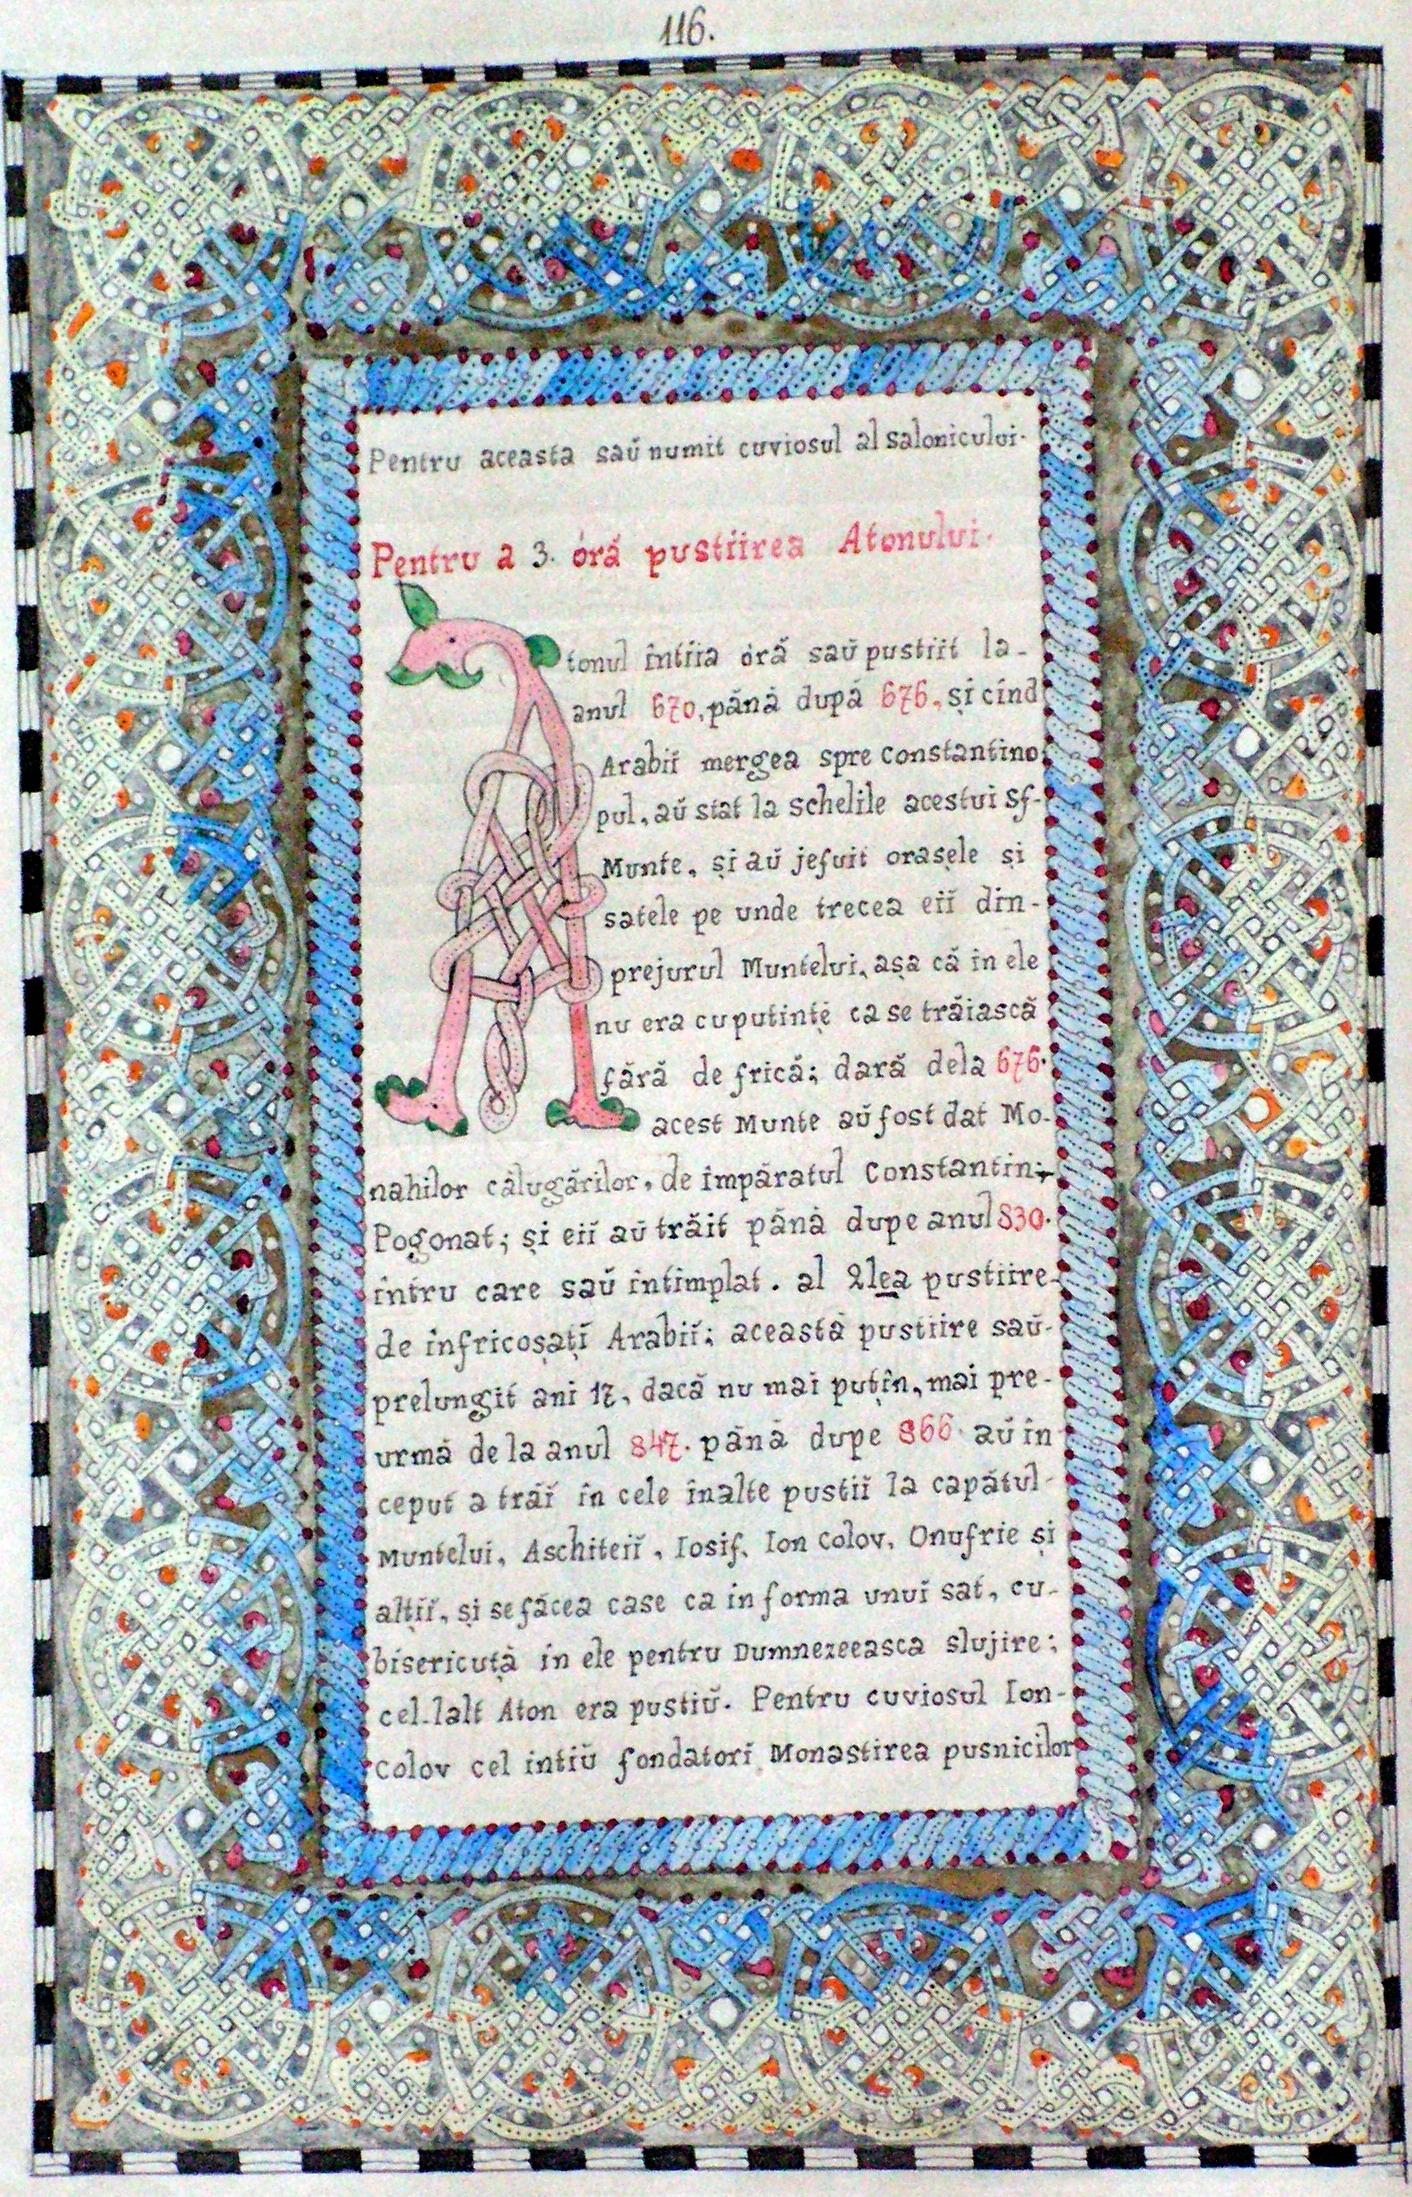 116.
Pentru aceasta saŭ numit cuviosul al salonicului.
Pentru a 3. óră pustiirea Atonului.
Atonul întiia óră saŭ pustiit la-
anul 670, până după 676, și cînd
Arabiĭ mergea spre constantino
pul, aŭ stat la schelile acestui Sf-
Munte, și aŭ jefuit orașele și
satele pe unde trecea eiĭ din-
prejurul Muntelui, așa că in ele
nu era cuputințe ca se trăiască
fără de frică; dară dela 676.
acest Munte aŭ fost dat Mo-
nahilor călugărilor, de împăratul Constantin;
Pogonat; și eiĭ aŭ trăit până dupe anul 830.
întru care saŭ întimplat. al 2lea pustiire-
de înfricoșațĭ Arabiĭ; aceastà pustiire saŭ-
prelungit ani 17, dacă nu mai puțîn, mai pre-
urmă de la anul 847. până dupe 866 aŭ în
ceput a trăĭ în cele înalte pustiĭ la capătul-
Muntelui, Aschiteiĭ, Iosif, Ion Colov, Onufrie și
alțiĭ, și se făcea case ca in forma unuĭ sat, cu-
bisericuță in ele pentru Dumnezeeasca slujire;
cel-lalt Aton era pustiŭ. Pentru cuviosul Ion-
Colov cel intiŭ fondatorĭ Monastirea pusnicilor